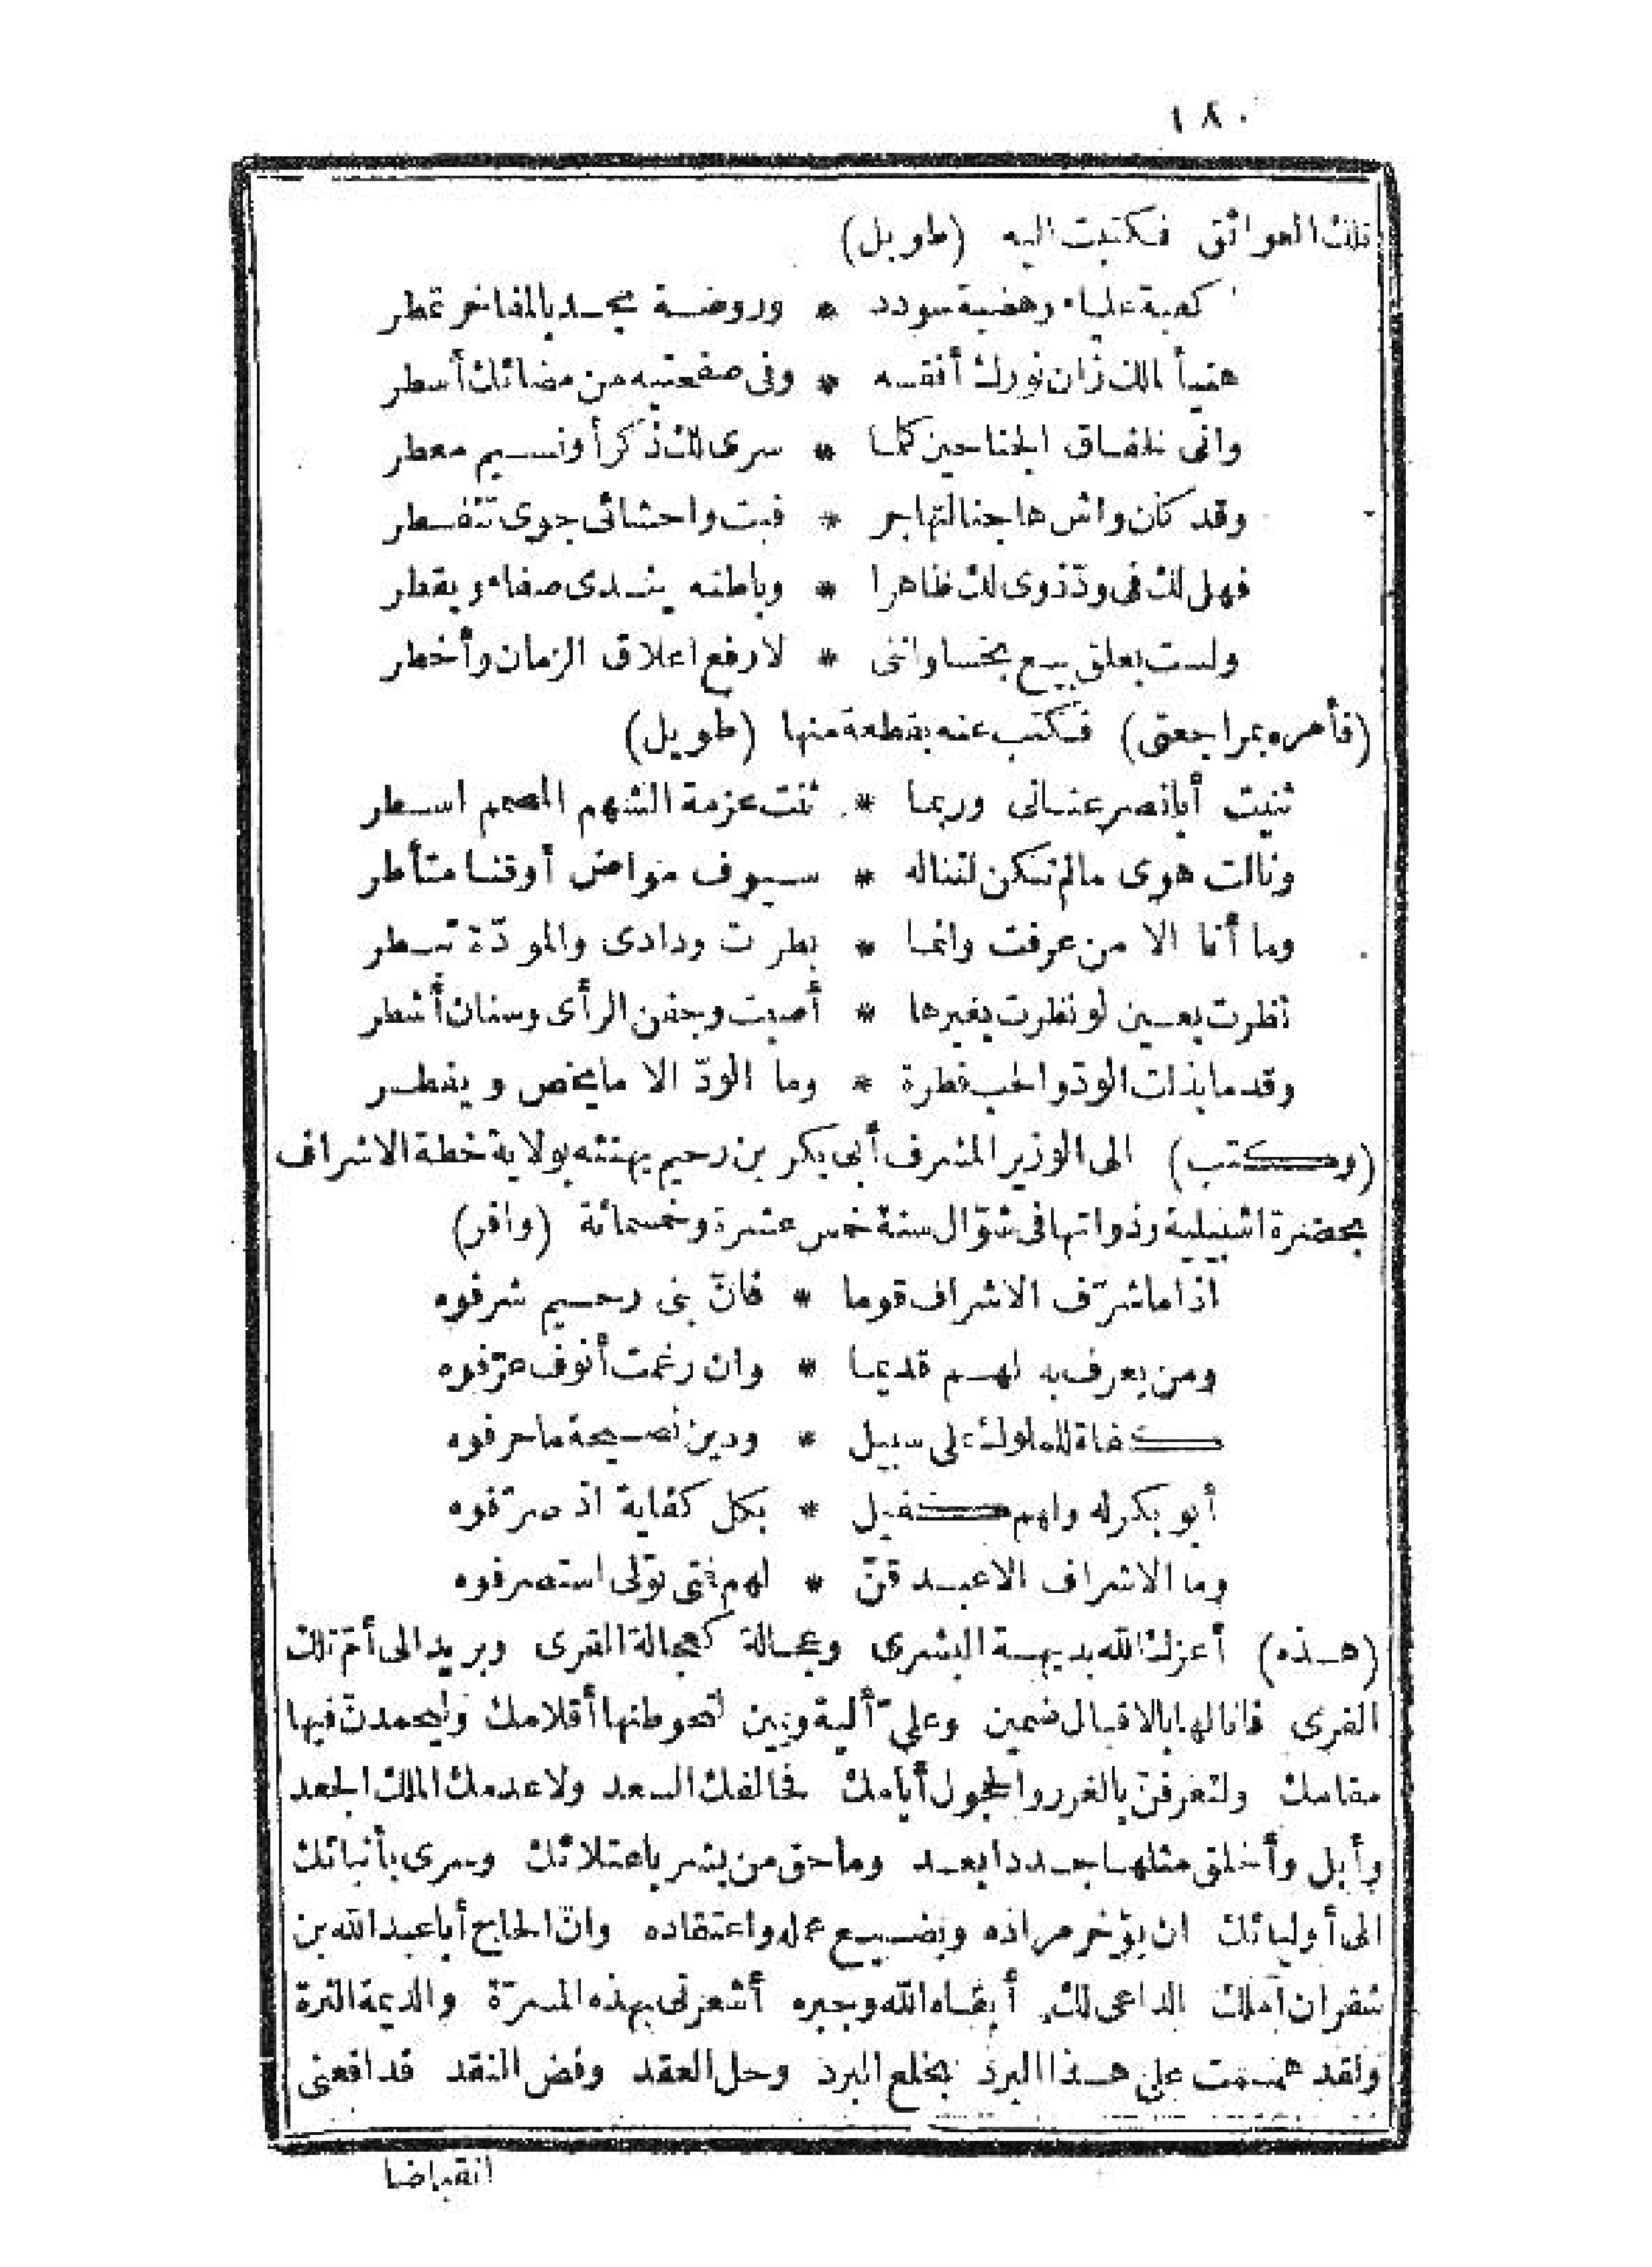 ١٨٠
تلك العوائق فكتبت اليه (طويل)
أكعبة علياء وهضبة سودد * وروضة مجد بالمفاخر تمطر
هنيأ لملك زان نورك أفقه * وفى صفحتيه من مضائك أسطر
وانى لخفاق الجناحين كلما * سرى لك ذكر أو نسيم معطر
وقد كان واش هاجنا لتهاجر * فبت واحشائى جوى تتفطر
فهل لك فى ود ذوى لك ظاهرا * وباطنه يندى صفاء ويقطر
ولست بعلق بيع بخسا واننى * لارفع اعلاق الزمان وأخطر
(فأمره بمراجعتى) فكتب عنه بقطعة منها (طويل)
ثنيت أبا نصر عنانى وربما * ثنت عزمة الشهم المصمم اسطر
ونالت هوى مالم تكن لتناله * سيوف مواض أو قنا متأطر
وما أنا الا من عرفت وانما * بطرت ودادى والمودّة تبطر
نظرت بعين لو نظرت بغيرها * أصبت وجفن الرأى وسنان أشطر
وقدما بذلت الودّ والحب فطرة * وما الودّ الا ما يخص ويفطر
(وكتب) الى الوزير المشرف أبى بكر بن رحيم يهنئه بولاية خطة الاشراف
بحضرة اشبيلية وذواتها فى شوّال سنة خمس عشرة وخمسمائة (وافر)
اذا ما شرّف الاشراف قوما * فانّ بنى رحيم شرفوه
ومن يعرف به لهم قديما * وان رغمت أنوف عرّفوه
كفاة للملوك على سبيل * ودين نصيحة ما حرفوه
أبو بكر له ولهم كفيل * بكل كفاية اذ صرّفوه
وما الاشراف الا عبد قنّ * لهم فتى تولى استصرفوه
(هذه) أعزك الله بديهة البشرى وعجالة كعجالة القرى وبريد الى أمّ تلك
القرى فانا لها بالاقبال ضمين وعليّ ألية ويمين لتحوطنها أقلامك وليحمدنّ فيها
مقامك ولتعرفنّ بالغرر والحجول أيامك فحالفك السعد ولا عدمك الملك الجعد
وأبل وأخلق مثلها جددا بعد وما حق من بشر باعتلائك وسرى بأنبائك
الى أوليائك ان يؤخر مراده ويضيع عمله واعتقاده وانّ الحاج أبا عبد الله بن
شقران آملك الداعى لك أبقاه الله وجبره أشعرنى بهذه المسرّة والديمة الثرة
ولقد هممت على هذا البرد بخلع البرد وحل العقد وفض النقد فدافعنى
انقباضا